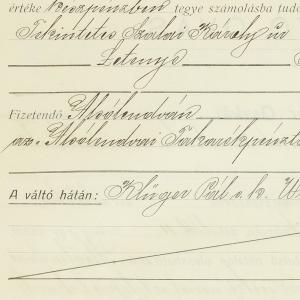 értéke készpénzben tegye számolásba tudó
Tekintetes Szalai Károly úr
Letenye
Fizetendő Alsólendván
az „Alsólendvai Takarékpénzt
A váltó hátán: Klüger Pál s. k.